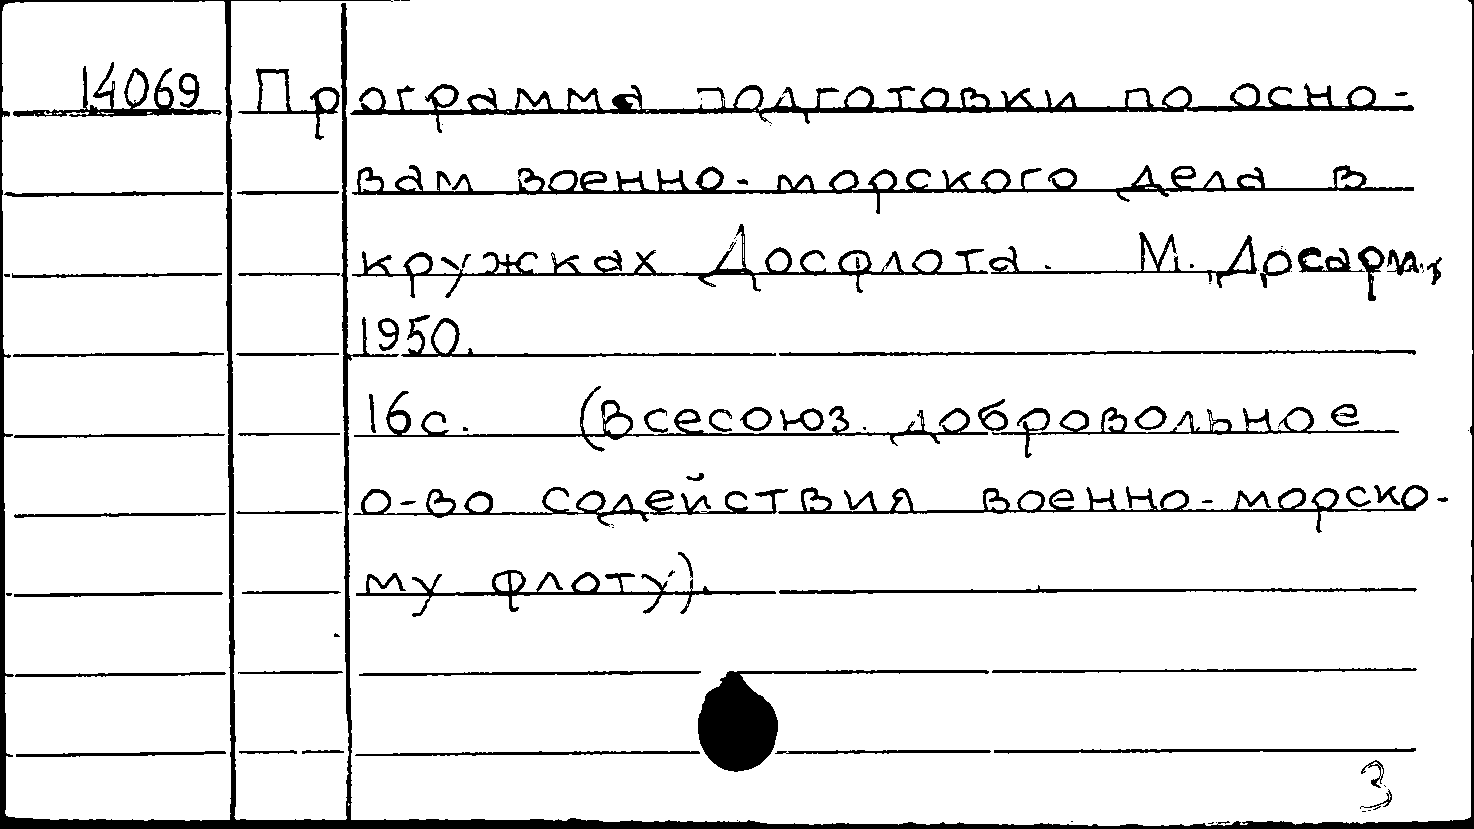 14069 Программа подготовки по осно-
вам военно-морского дела в
кружках Досфлота. М., Досарм,
1950.
16с. (Всесоюз. добровольное
о-во содействия военно-морско-
му флоту).
3